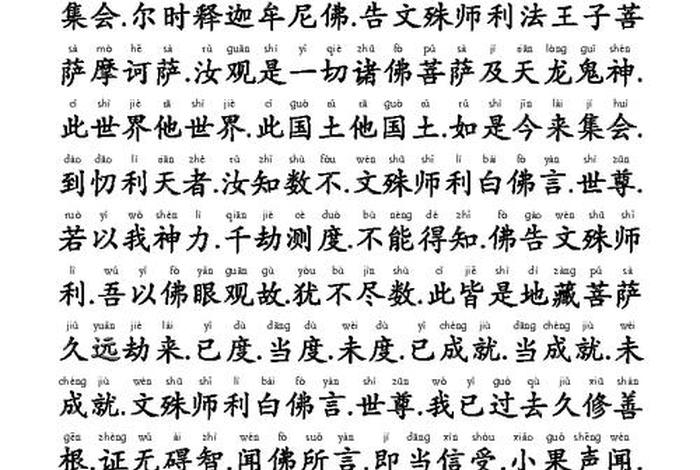 集会.尔时释迦牟尼佛.告文殊师利法王子菩
sà mò hē sà rǔ guān shì yí qiè zhū fó pú sà jí tiān lóng guǐ shén
萨摩诃萨.汝观是一切诸佛菩萨及天龙鬼神.
cǐ shì jiè tā shì jiè cǐ guó tǔ tā guó tǔ rú shì jīn lái jí huì
此世界他世界.此国土他国土.如是今来集会.
dào dāo lì tiān zhě rǔ zhī shù fǒu wén shū shī lì bái fó yán shì zūn
到忉利天者.汝知数不.文殊师利白佛言.世尊.
ruò yǐ wǒ shén lì qiān jié cè duó bù néng dé zhī fó gào wén shū shī
若以我神力.千劫测度.不能得知.佛告文殊师
lì wú yǐ fó yǎn guān gù yóu bú jìn shù cǐ jiē shì dì zàng pú sà
利.吾以佛眼观故.犹不尽数.此皆是地藏菩萨
jiǔ yuǎn jié lái yǐ dù dāng dù wèi dù yǐ chéng jiù dāng chéng jiù wèi
久远劫来.已度.当度.未度.已成就.当成就.未
chéng jiù wén shū shī lì bái fó yán shì zūn wǒ yǐ guò qù jiǔ xiū shàn
成就.文殊师利白佛言.世尊.我已过去久修善
gēn zhèng wú ài zhì wén fó suǒ yán jí dāng xìn shòu xiǎo guǒ shēng wén
根.证无碍智.闻佛所言.即当信受.小果声闻.